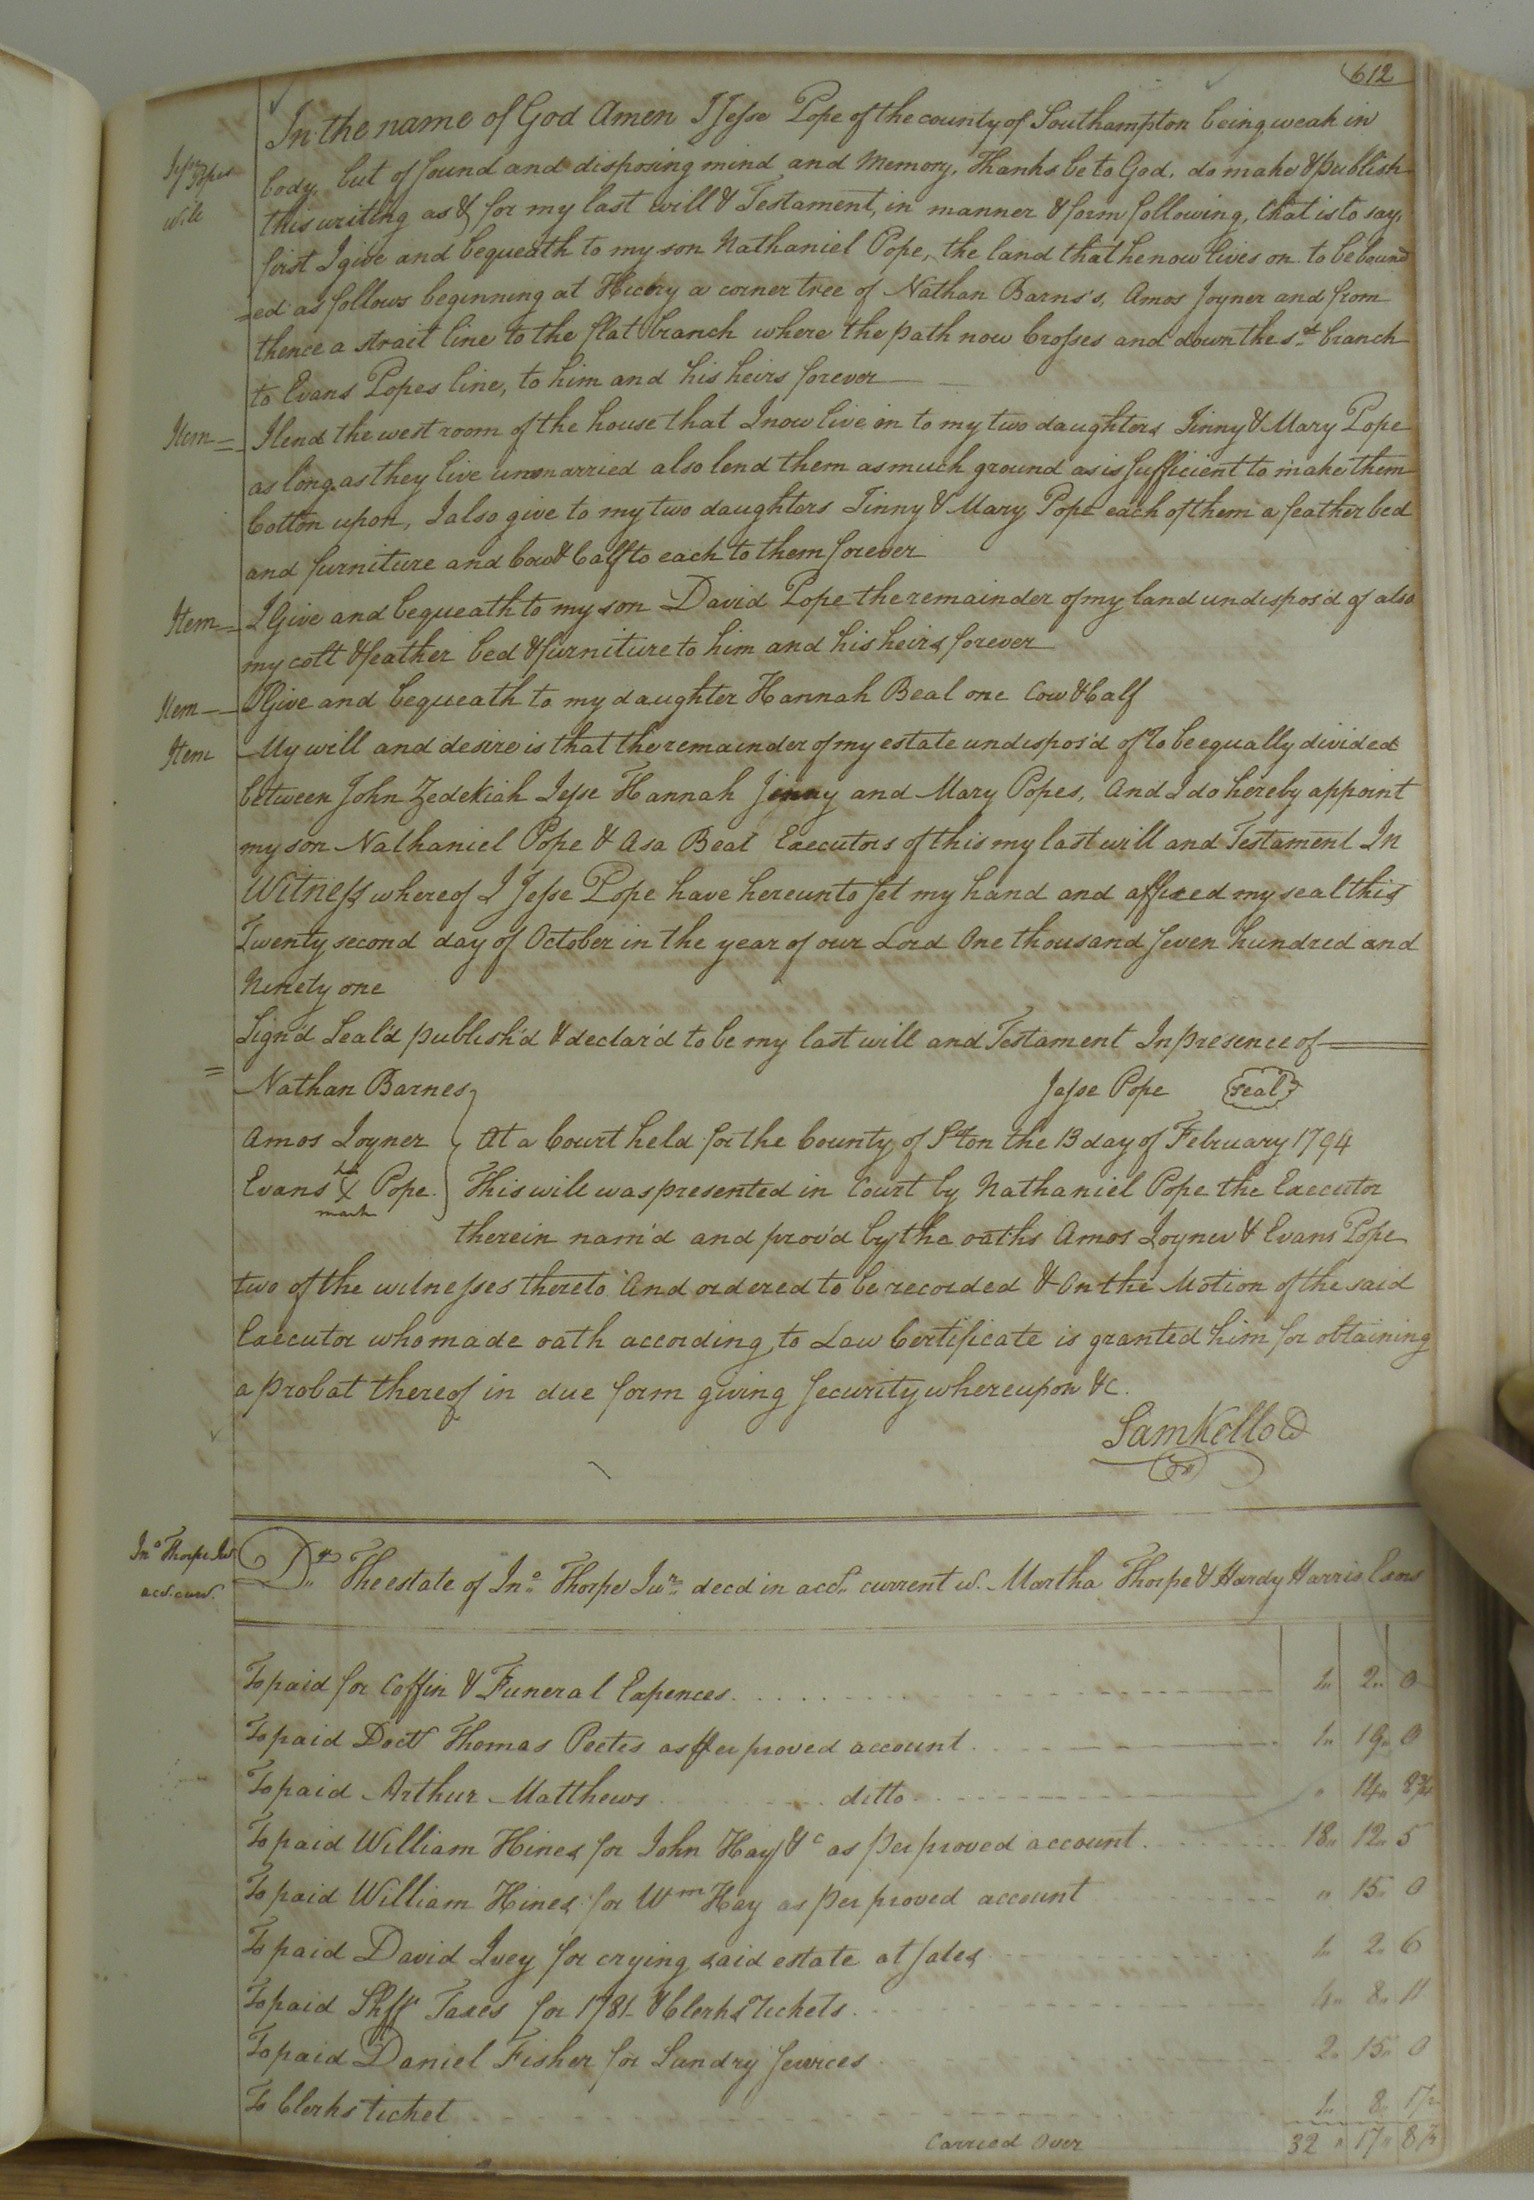 612
In the name of God Amen I Jesse Pope of the county of Southampton being weak in
Jesse Popes
will
body, but of sound and disposing mind and Memory, thanks be to God, do make & publish
this writing as & for my last will & Testament, in manner & form following, that is to say,
first I give and bequeath to my son Nathaniel Pope, the land that he now lives on to be bound
=ed as follows beginning at Hicory a corner tree of Nathan Barns's, Amos Joyner and from
thence a strait line to the flat branch where the path now Crosses and down the sd. branch
to Evans Popes line, to him and his heirs forever
Item = I lend the west room of the house that I now live in to my two daughters Jinny & Mary Pope
as long as they live unmarried also lend them as much ground as is sufficient to make them
Cotton upon, I also give to my two daughters Jinny & Mary Pope each of them a feather bed
and furniture and Cow & Calf to each to them forever
Item = I Give and bequeath to my son David Pope the remainder of my land undispos'd of also
my colt & feather bed & furniture to him and his heirs forever
Item - I Give and bequeath to my daughter Hannah Beal one Cow & Calf
Item My will and desire is that the remainder of my estate undispos'd of To be equally divided
between John Zedekiah Jesse Hannah Jinny and Mary Popes, And I do hereby appoint
my son Nathaniel Pope & Asa Beal Executors of this my last will and Testament In
Witness whereof I Jesse Pope have hereunto set my hand and affixed my seal this
Twenty second day of October in the year of our Lord One thousand seven hundred and
Ninety one
Sign'd Seal'd publish'd & declar'd to be my last will and Testament In presence of
= Nathan Barnes Jesse Pope seal
Amos Joyner At a Court held for the County of Sthton the 13 day of February 1794
Evans his X Pope This will was presented in Court by Nathaniel Pope the Executor
mark
therein nam'd and prov'd by the oaths Amos Joyner & Evans Pope
two of the witnesses thereto And ordered to be recorded & On the Motion of the said
Executor who made oath according to Law Certificate is granted him for obtaining
a probat thereof in due form giving security whereupon &c.
Sam Kello
Jno. Thorpe Junr
acct. curr.
Dr. The estate of Jno. Thorpe Junr. decd in acct. current w. Martha Thorpe & Hardy Harris Exors
To paid for Coffin & Funeral Expences 1 2 0
To paid Doctr Thomas Peetes as per proved account 1 19 0
To paid Arthur Matthews ditto " 14 8 3/4
To paid William Hines for John Hay &c as per proved account 18 12 5
To paid William Hines for Wm Hay as per proved account " 15 0
To paid David Ivey for crying said estate at sales 1 2 6
To paid Shff Taxes for 1781 & Clerks Tickets 4 8 11
To paid Daniel Fisher for Sundry services 2 15 0
To Clerks ticket 1 8 1 1/2
Carried Over 32 17 8